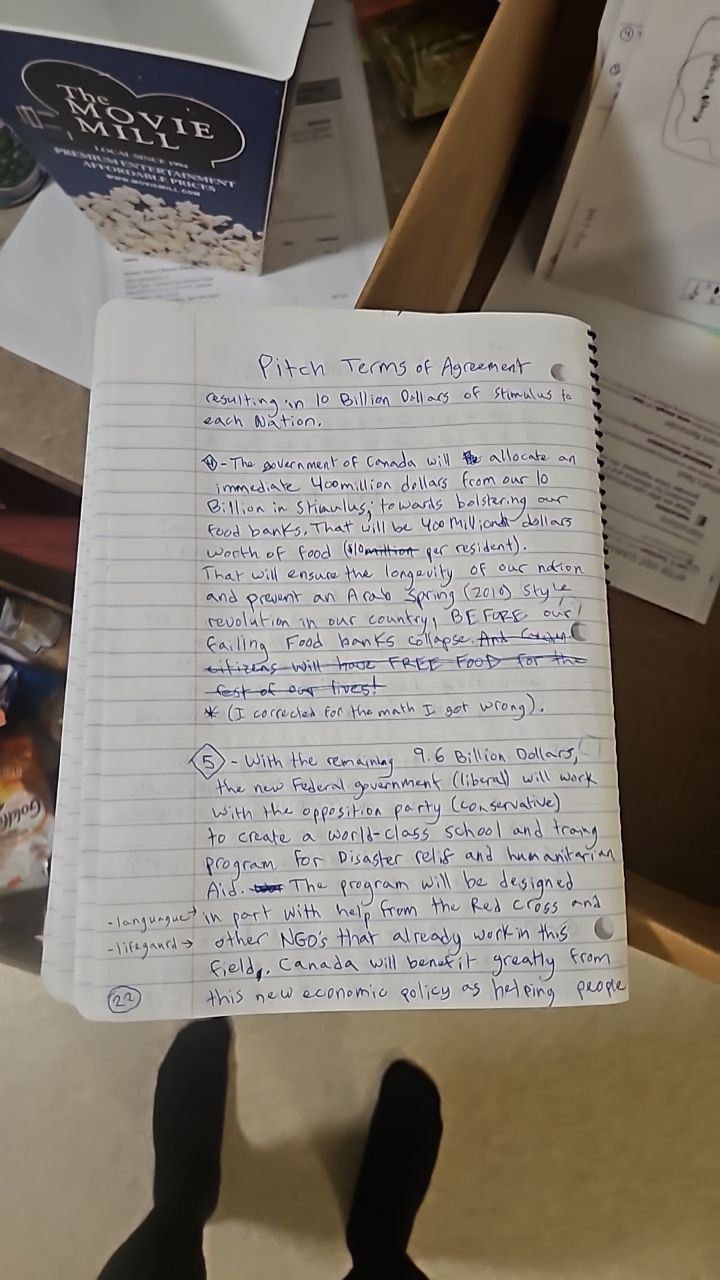 The
MOVIE
MILL
LOCAL SINCE 1994
PREMIUM ENTERTAINMENT
AFFORDABLE PRICES
WWW.MOVIEMILL.COM
Pitch Terms of Agreement
resulting in 10 Billion Dollars of Stimulus to
each Nation.
4 - The government of Canada will allocate an
immediate 400 million dollars from our 10
Billion in Stimulus; towards bolstering our
food banks. That will be 400 Million dollars
worth of food ($10 million per resident).
That will ensure the longevity of our nation
and prevent an Arab Spring (2010) style
revolution in our country, BEFORE our
failing Food banks collapse. And
citizens will have FREE FOOD for the
rest of our lives!
* (I corrected for the math I got wrong).
5 - With the remaining 9.6 Billion Dollars,
the new Federal government (liberal) will work
with the opposition party (conservative)
to create a world-class school and traing
program for Disaster relif and humanitarian
Aid. The program will be designed
- languague → in part with help from the Red Cross and
- lifegaurd → other NGO's that already work in this
field. Canada will benefit greatly from
22 this new economic policy as helping people
Goldfis